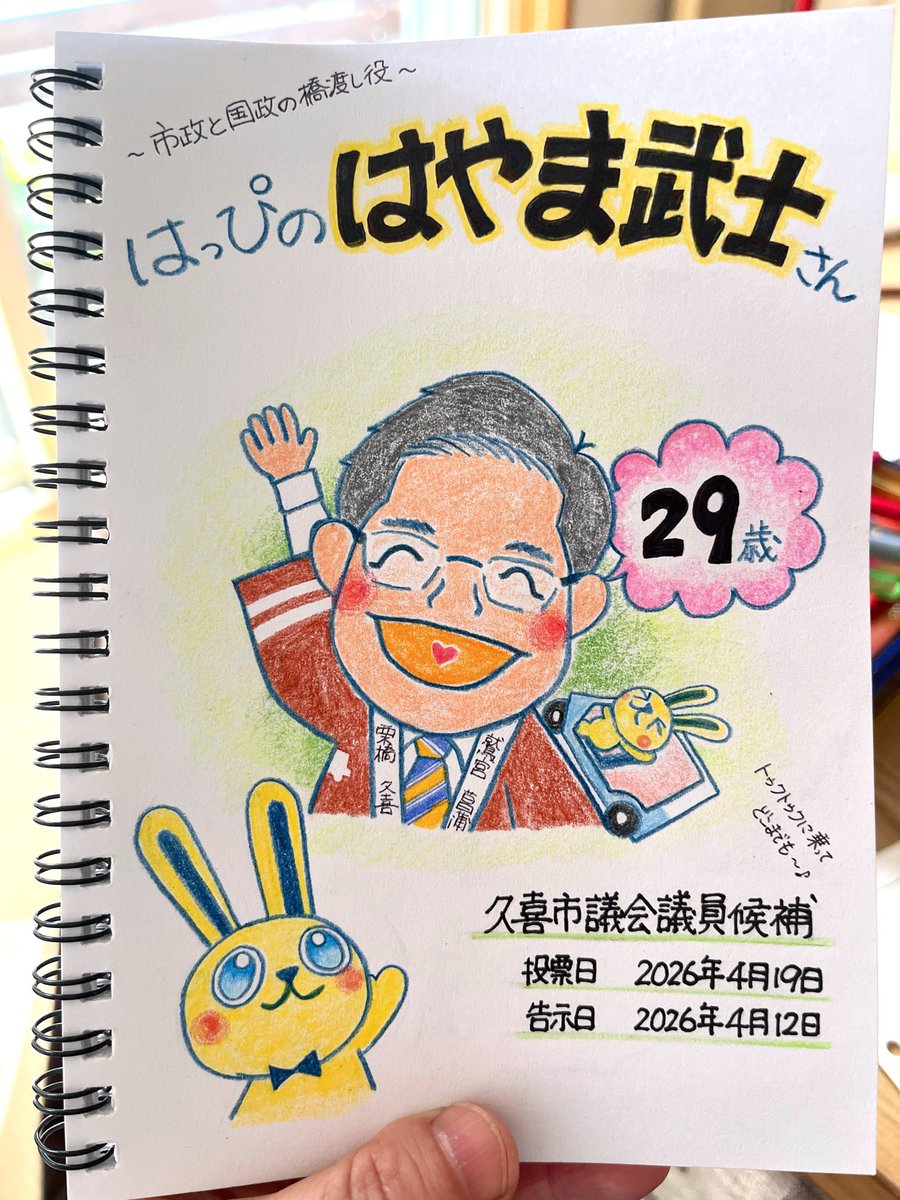 ～市政と国政の橋渡し役～
はっぴの はやま武士さん
29歳
栗橋 久喜
鷲宮 菖蒲
トゥクトゥクに乗って
どこまでも～♪
久喜市議会議員候補
投票日 2026年4月19日
告示日 2026年4月12日